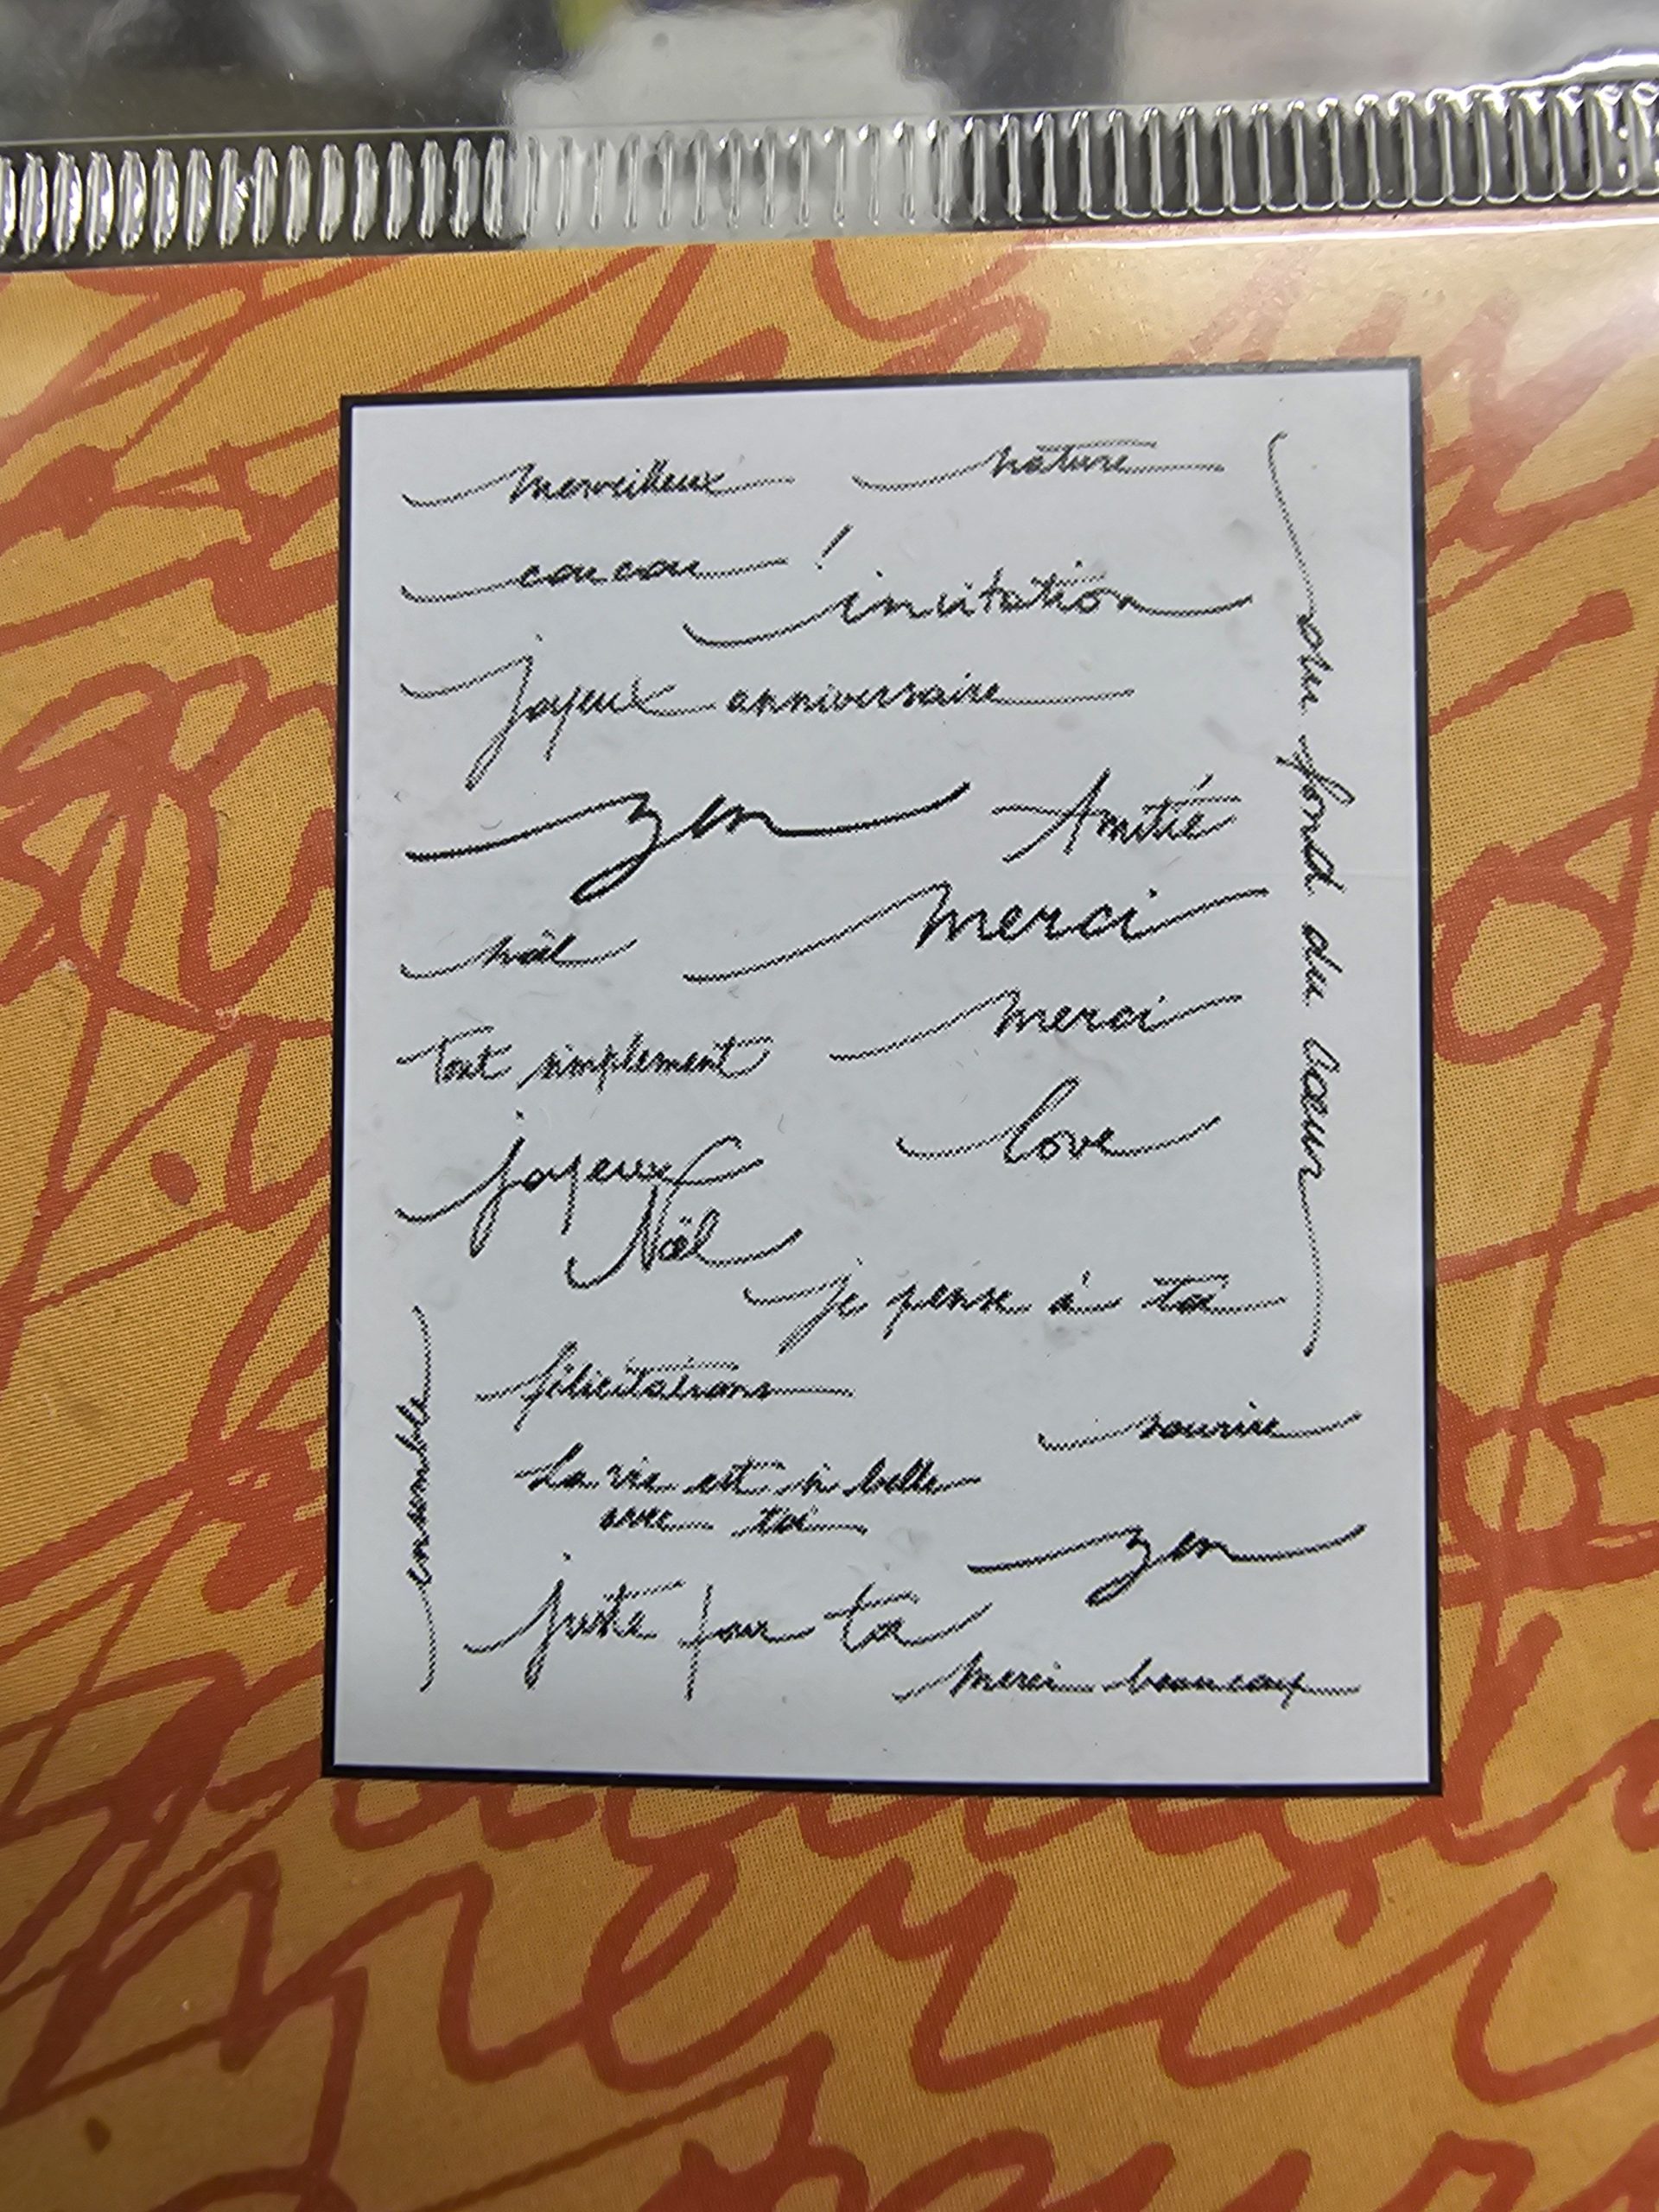 merveilleux
nature
coucou !
invitation
joyeux anniversaire
zen
Amitié
noël
merci
Tout simplement
merci
love
joyeux
Noël
je pense à toi
félicitations
sourire
La vie est si belle
avec toi
zen
juste pour toi
merci beaucoup
ensemble
au fond du cœur
merci